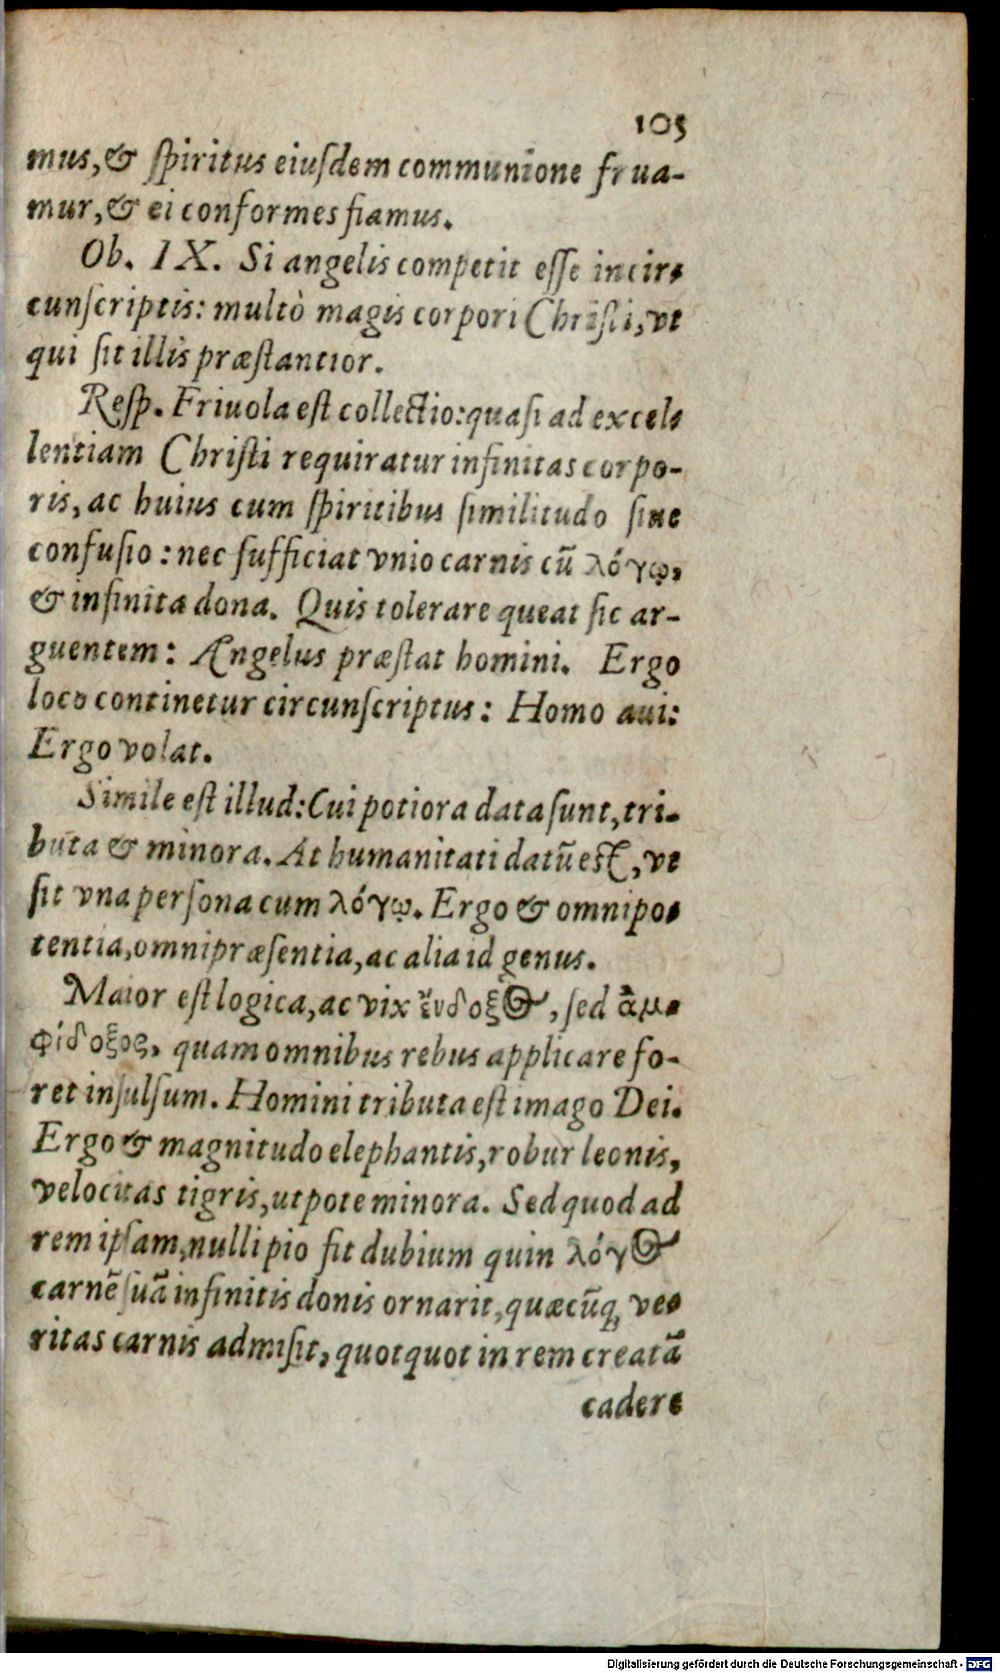 105
mus, & ſpiritus eiuſdem communione frua-
mur, & ei conformes fiamus.
Ob. IX. Si angelis competit eſſe incir-
cunſcriptis: multò magis corpori Chriſti, vt
qui ſit illis præſtantior.
Reſp. Friuola eſt collectio: quaſi ad excel-
lentiam Chriſti requiratur infinitas corpo-
ris, ac huius cum ſpiritibus ſimilitudo ſine
confuſio: nec ſufficiat vnio carnis cū λόγῳ,
& infinita dona. Quis tolerare queat ſic ar-
guentem: Angelus præſtat homini. Ergo
loco continetur circunſcriptus: Homo aui:
Ergo volat.
Simile eſt illud: Cui potiora data ſunt, tri-
buta & minora. At humanitati datū est, vt
ſit vna perſona cum λόγῳ. Ergo & omnipo-
tentia, omnipræſentia, ac alia id genus.
Maior eſt logica, ac vix ἔνδοξος, ſed ἀμ-
φίδοξος, quam omnibus rebus applicare fo-
ret inſulſum. Homini tributa eſt imago Dei.
Ergo & magnitudo elephantis, robur leonis,
velocitas tigris, utpote minora. Sed quod ad
rem ipſam, nulli pio ſit dubium quin λόγος
carnē ſuā infinitis donis ornarit, quæcūq; ve-
ritas carnis admiſit, quotquot in rem creatā
cadere
Digitalisierung gefördert durch die Deutsche Forschungsgemeinschaft - DFG